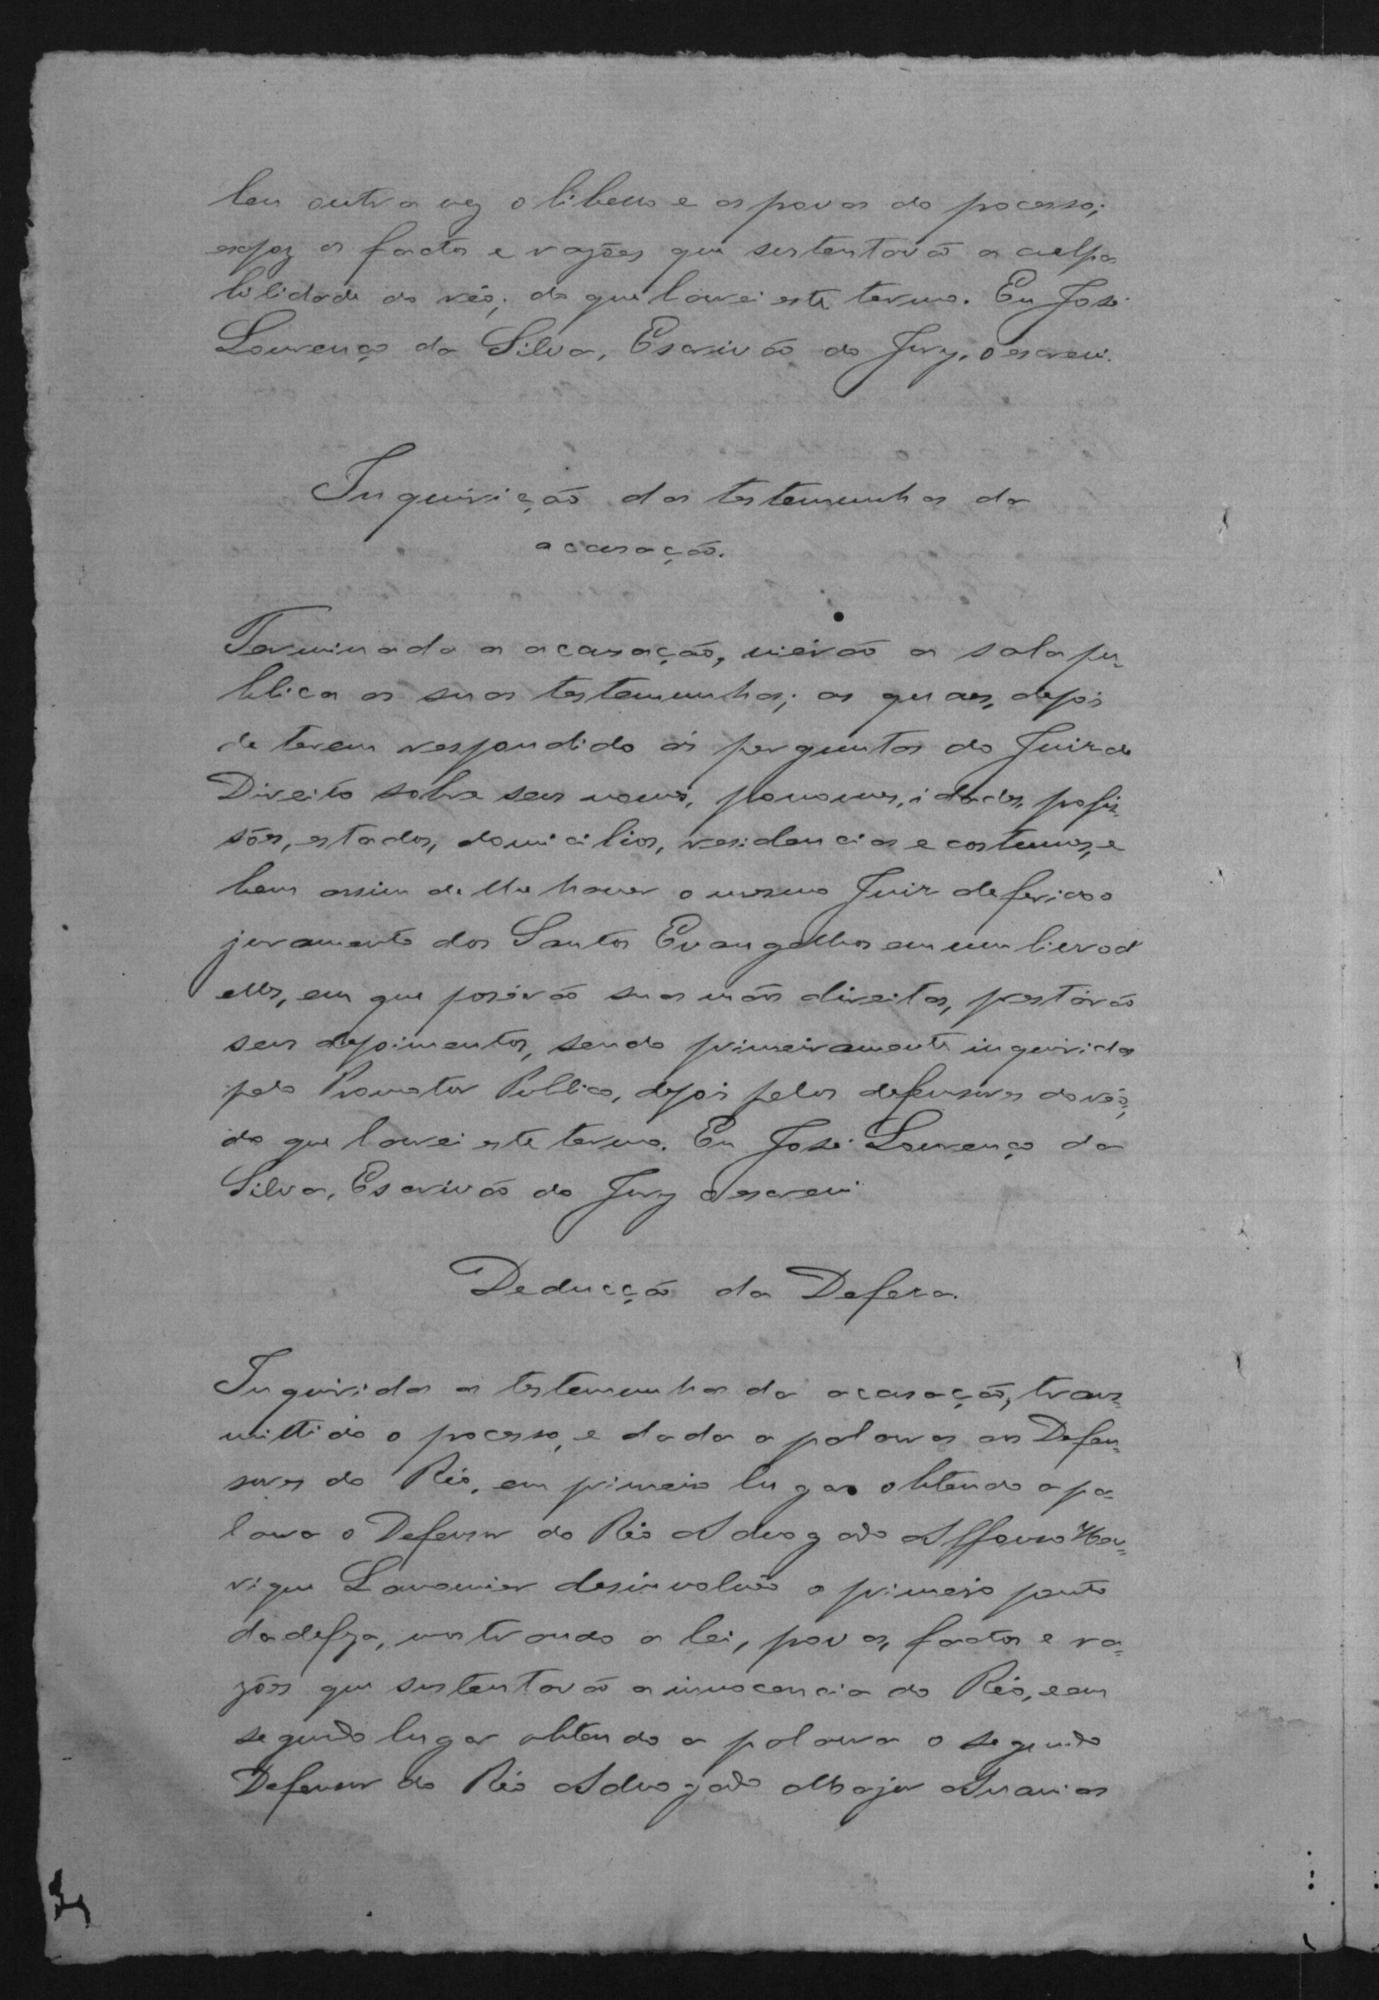 leu outra vez o libello e as provas do processo;
expoz os factos e razões que sustentavão a culpa
bilidade do réo; do que lavrei este termo. Eu José
Lourenço da Silva, Escrivão do Jury, o escrevi.
Inquirição das testemunhas da
accusação.
Terminada a accusação, vierão a sala pu-
blica as suas testemunhas; as quaes, depois
de terem respondido ás perguntas do Juiz de
Direito sobre seus nomes, pronomes, idades, profis-
sões, estados, domicilios, residencias e costumes, e
bem assim de lhe haver o mesmo Juiz deferido o
juramento dos Santos Evangelhos em um livro d'
elles, em que poserão suas mãos direitas, prestárão
seus depoimentos, sendo primeiramente inquiridas
pelo Promotor Publico, depois pelos defensores do réo,
do que lavrei este termo. Eu José Lourenço da
Silva, Escrivão do Jury o escrevi.
Deducção da Defesa.
Inquiridas as testemunhas da accusação, trans-
mittido o processo, e dada a palavra aos Defen-
sores do Réo, em primeiro lugar obtendo a pa-
lavra o Defensor do Réo Advogado Affonso Hen-
rique Lamounier desinvolveo o primeiro ponto
da defeza, mostrando a lei, provas, factos e ra-
zões que sustentavão a innocencia do Réo, e em
segundo lugar obtendo a palavra o segundo
Defensor do Réo Advogado Major